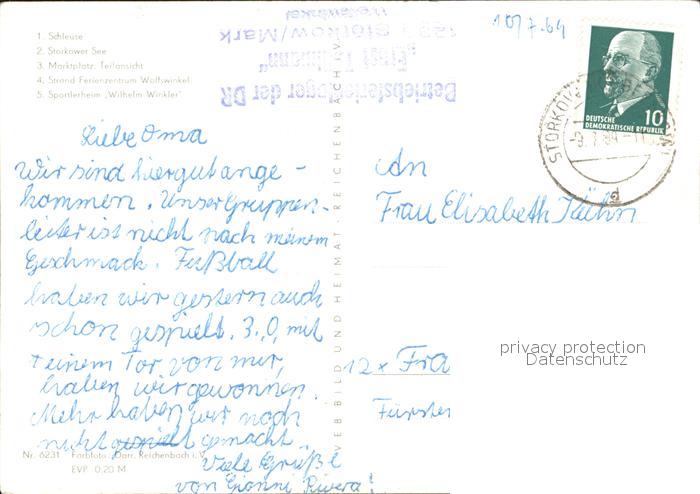 1. Schleuse
2. Storkower See
3. Marktplatz: Teilansicht
4. Strand Ferienzentrum Wolfswinkel
5. Sportlerheim „Wilhelm Winkler"
10/7.64
Betriebsferienlager der DR
„Ernst Thälmann"
Storkow/Mark
Wolfswinkel
10
DEUTSCHE
DEMOKRATISCHE REPUBLIK
STORKOW
Liebe Oma
Wir sind hier gut ange-
kommen. Unser Gruppen-
leiter ist nicht nach meinem
Geschmack. Fußball
haben wir gestern auch
schon gespielt. 3:0, mit
einem Tor von mir,
haben wir gewonnen.
Mehr haben wir noch
nicht gespielt gemacht.
Viele Grüße
von Gionni Rivera!
An
Frau Elisabeth Kühn
12 x Fra
Fürsten
VEB BILD UND HEIMAT REICHENBACH I. V.
privacy protection
Datenschutz
Nr. 6231 Farbfoto: Darr, Reichenbach i. V.
EVP 0,20 M